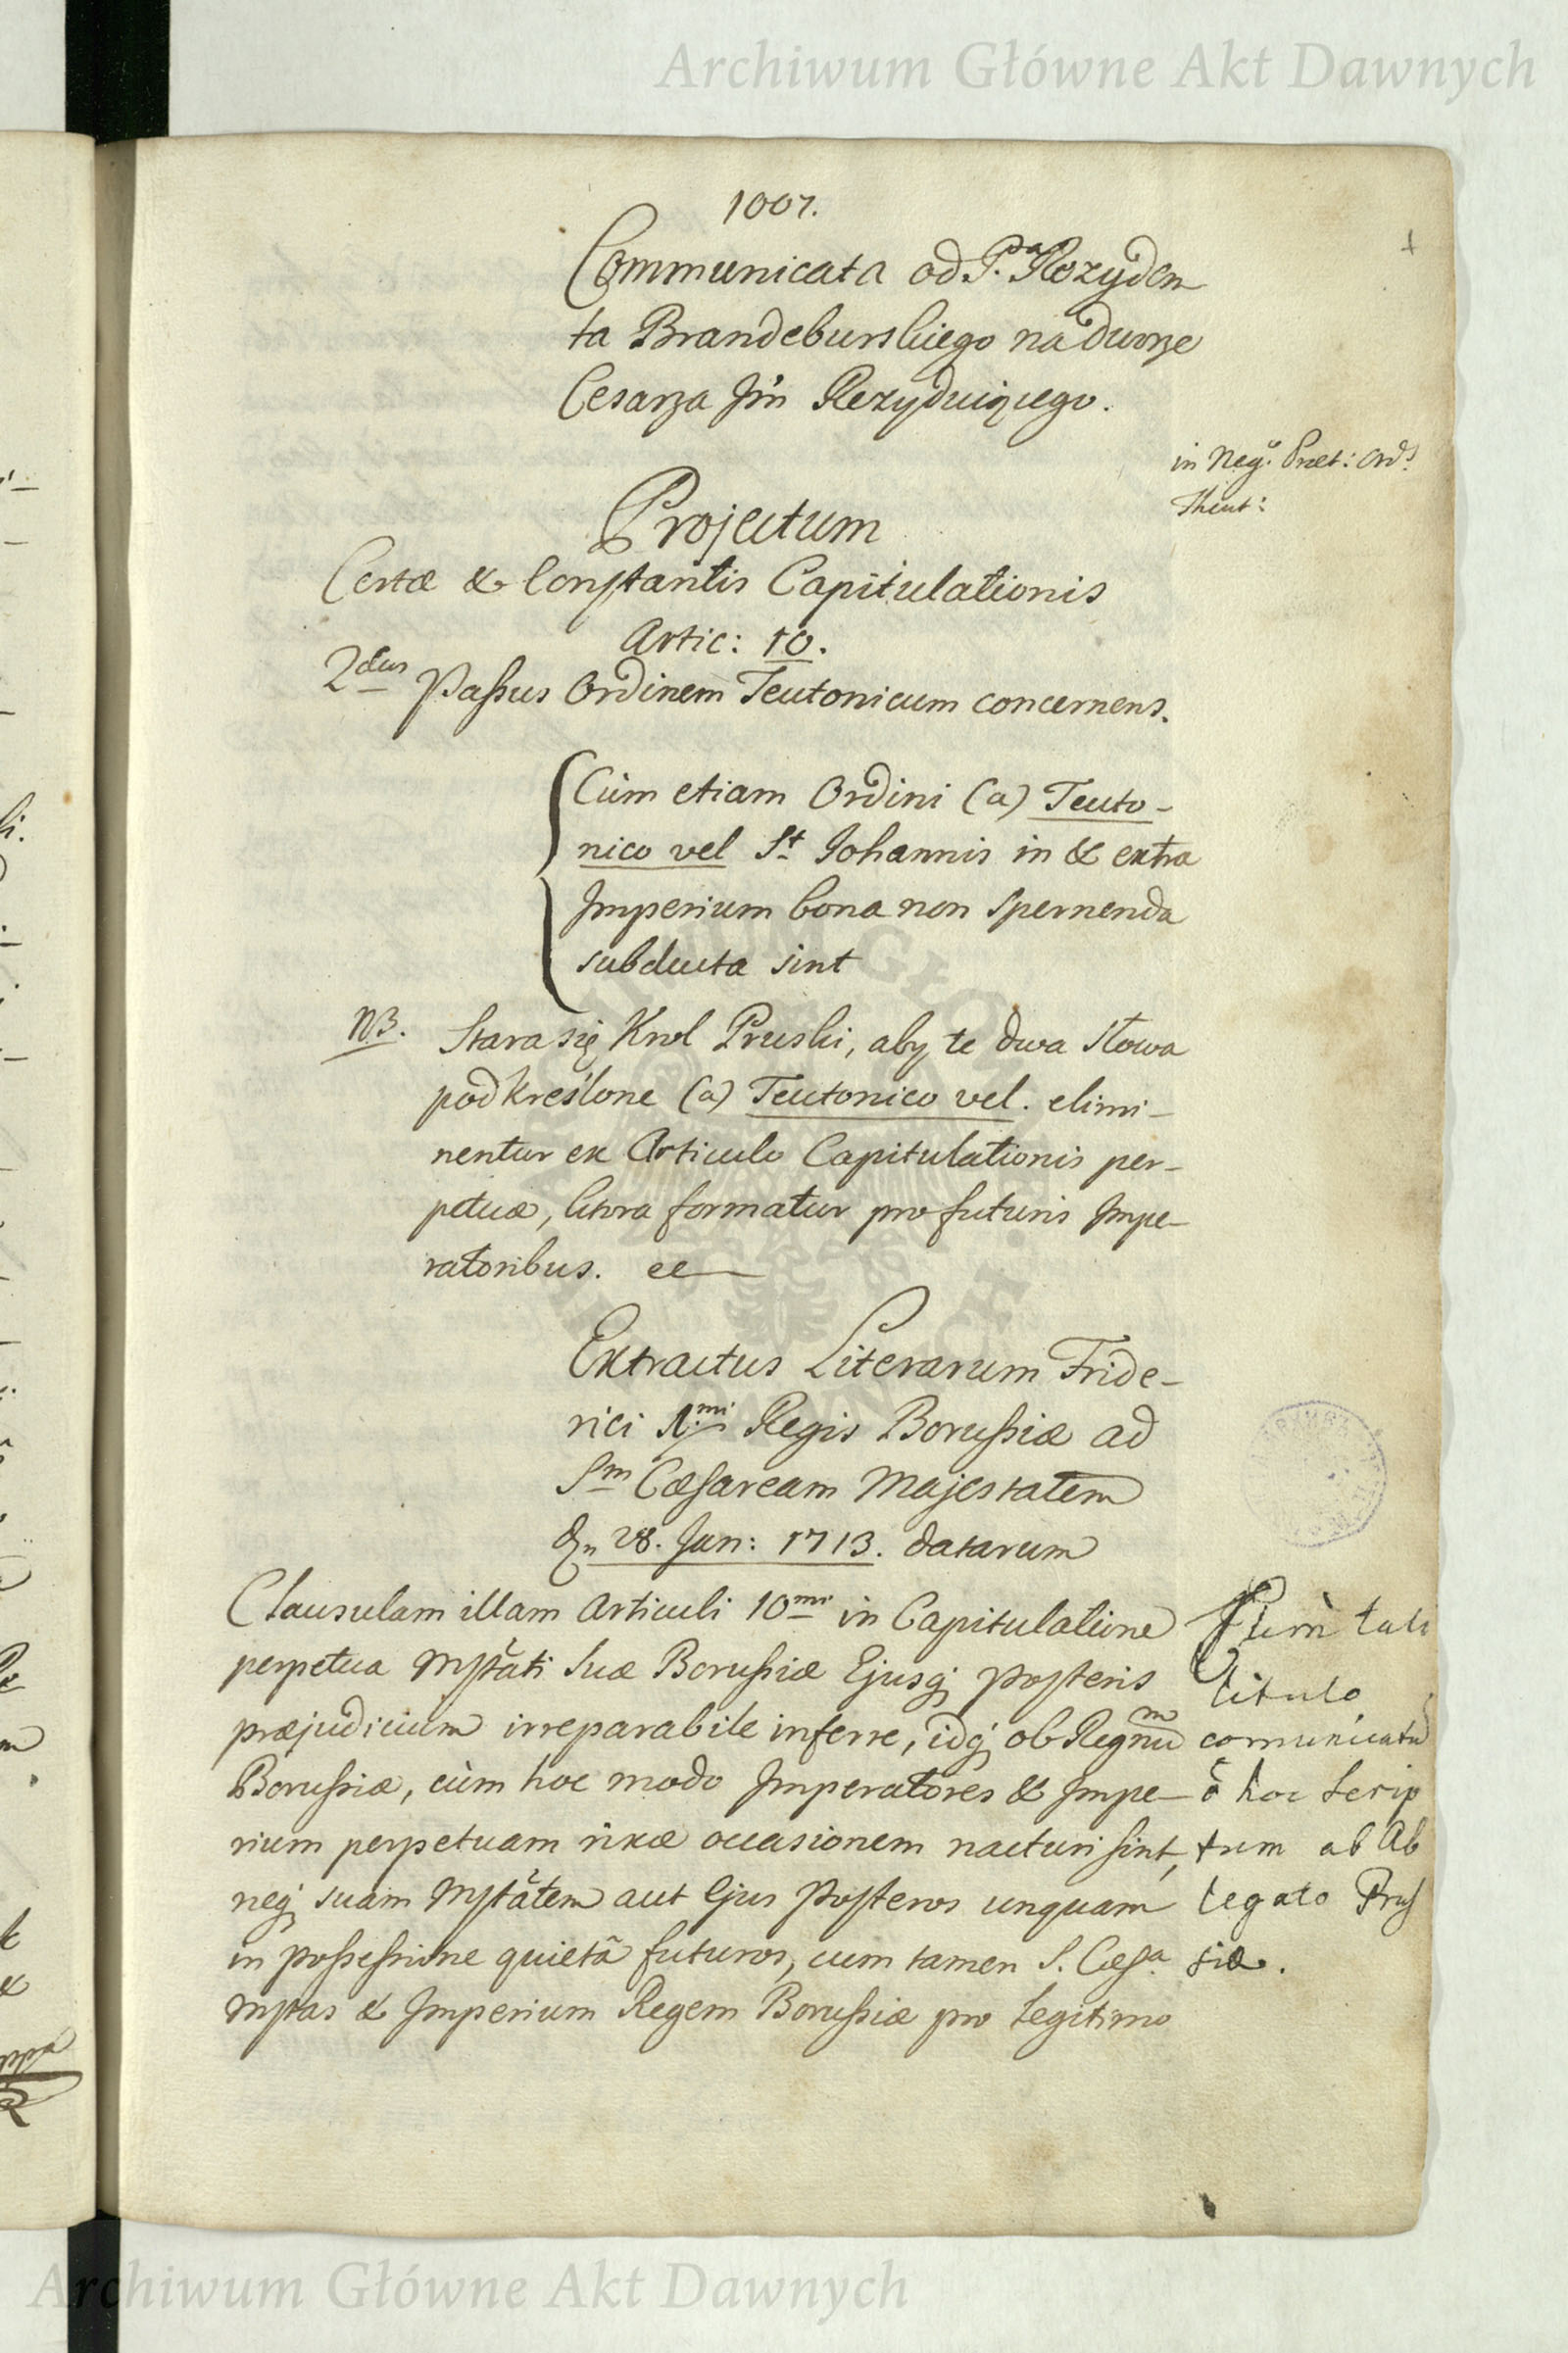 Archiwum Główne Akt Dawnych
1007.
Communicata od P.na Rezyden
ta Brandeburskiego na dworze
Cesarza Jm Rezyduiącego.
in Neg.o Præt: Ord.s
Theut:
Projectum
Certæ & Constantis Capitulationis
Artic: 10.
2dus Passus Ordinem Teutonicum concernens.
Cùm etiam Ordini (a) Teuto-
nico vel St Johannis in & extra
Imperium bona non spernenda
subducta sint
NB. Stara się Krol Pruski, aby te dwa słowa
podkreślone (a) Teutonico vel. elimi-
nentur ex Articulo Capitulationis per-
petuæ, formatur pro futuris Impe-
ratoribus.
Extractus Literarum Fride-
rici 1.mi Regis Borussiæ ad
Sm Cæsaream Majestatem
28. Jan: 1713. datarum
Clausulam illam Articuli 10mi in Capitulatione
perpetua Mstāti Suæ Borussiæ Ejusq; posteris
præjudicium irreparabile inferre, idq; ob Regnum
Borussiæ, cùm hoc modo Imperatores & Impe-
rium perpetuam rixæ occasionem nacturi sint,
neq; suam Mstātem aut Ejus Posteros unquam
in possessione quietâ futuros, cum tamen S. Cæsa.
Mstas & Imperium Regem Borussiæ pro legitimo
tali
titulo
comunicatū
ē hoc scrip
tum ab Ab
legato Prus
siæ.
Archiwum Główne Akt Dawnych